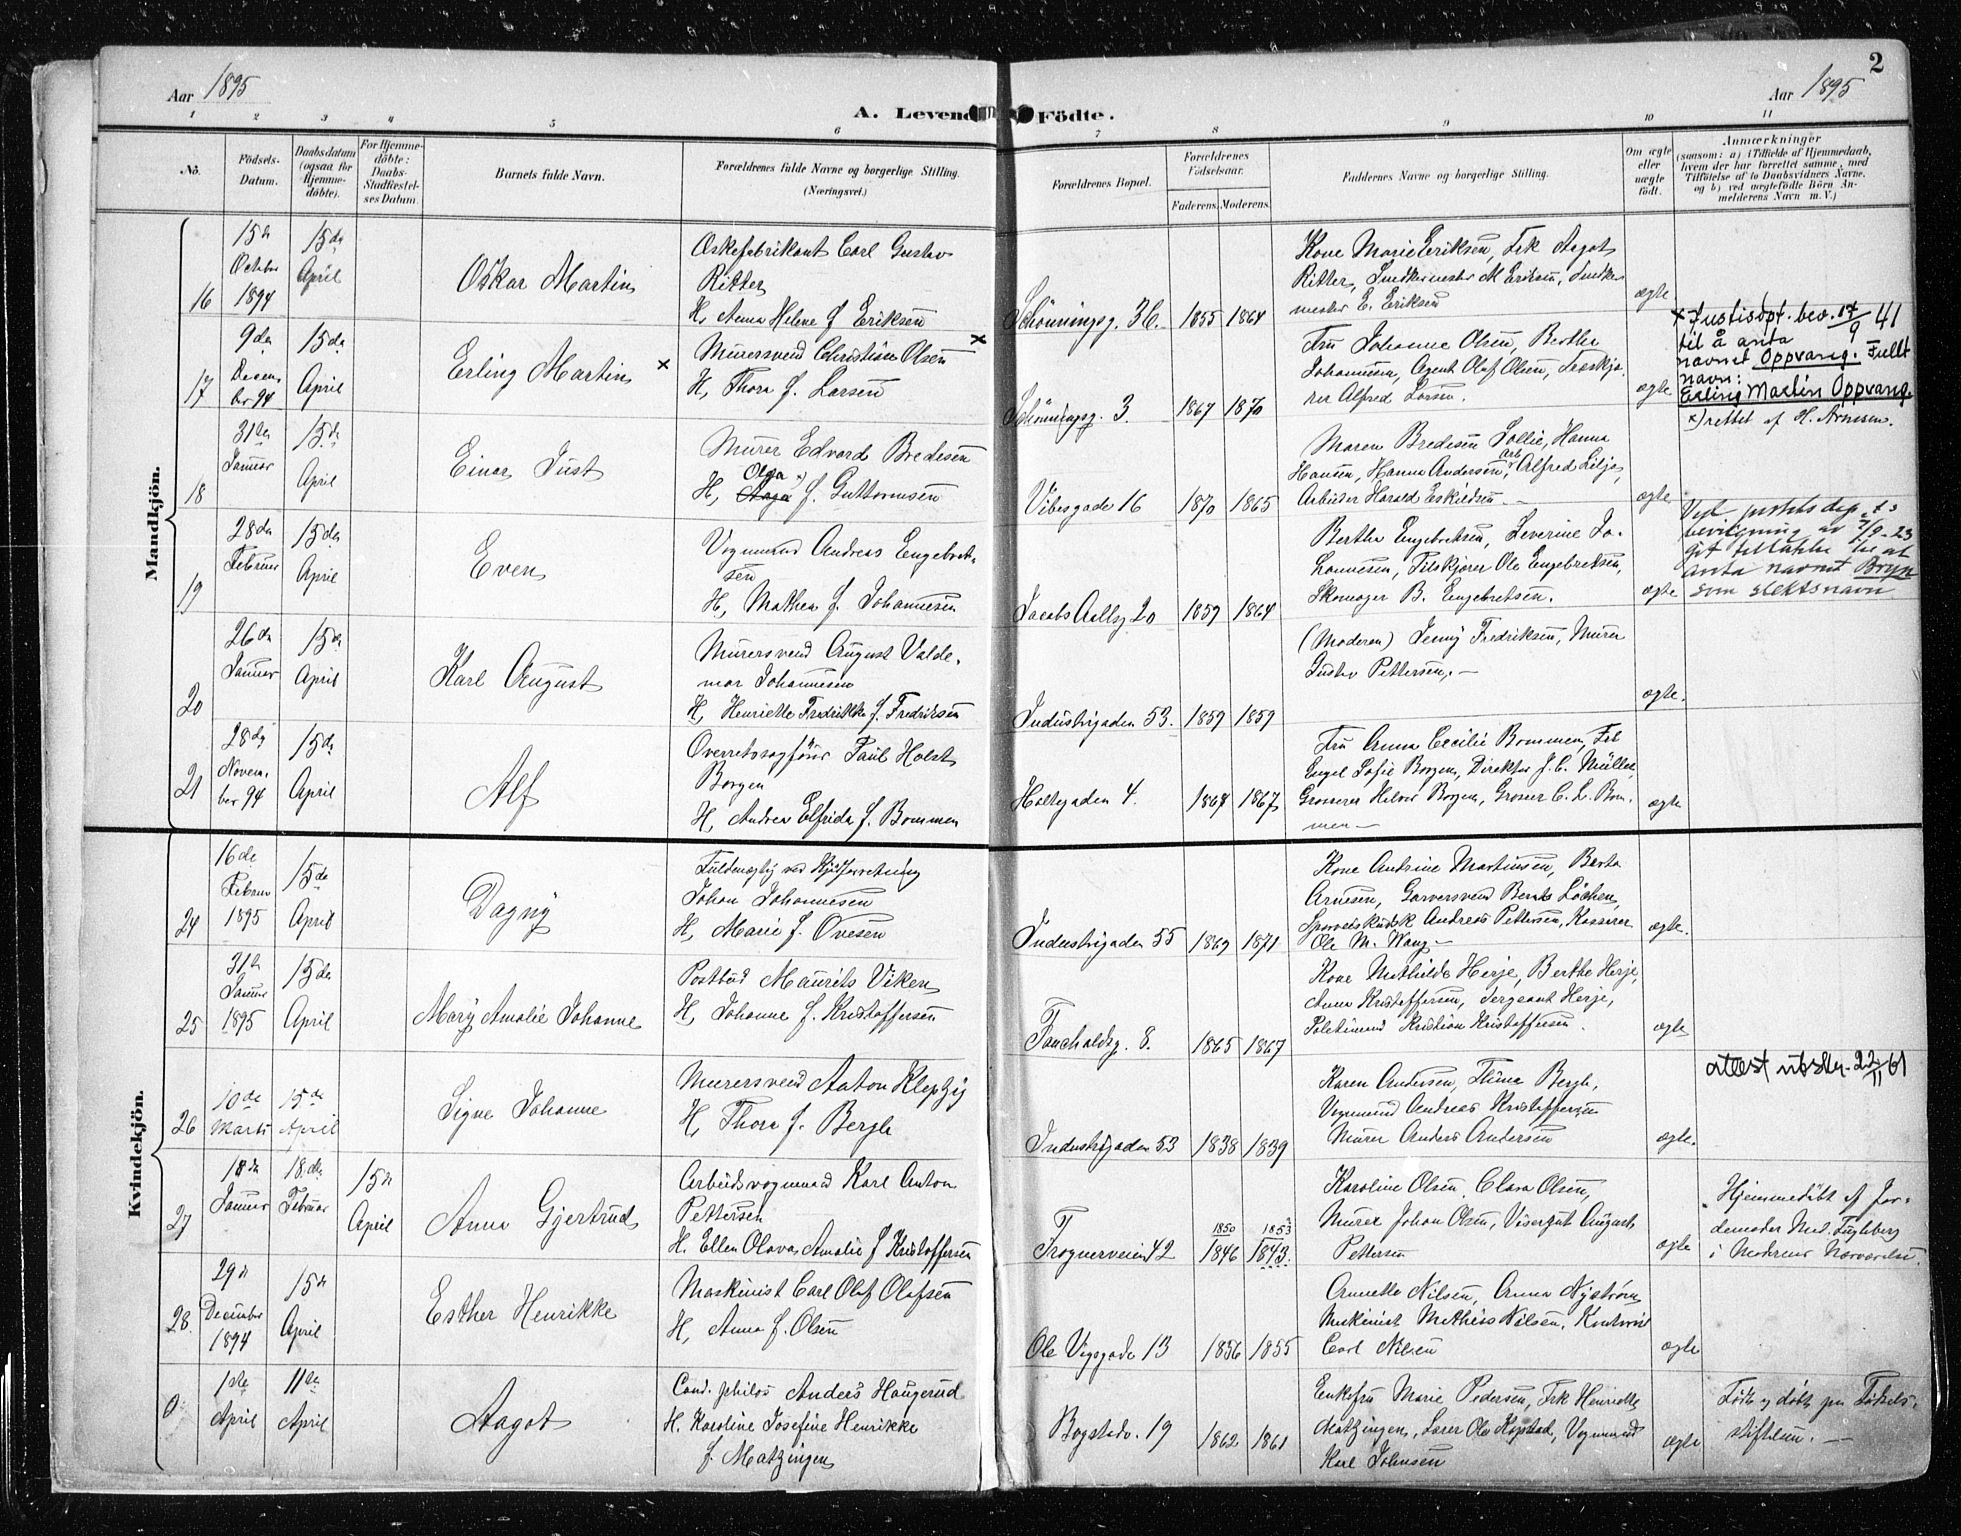 2
Aar 1895
Aar 1895
A. Levende Födte.
1 2 3 4 5 6 7 8 9 10 11
No.
Födsels-
Datum.
Daabsdatum
(ogsaa for
Hjemme-
döbte).
For Hjemme-
döbte:
Daabs-
Stadfæstel-
ses Datum.
Barnets fulde Navn.
Forældrenes fulde Navne og borgerlige Stilling.
(Næringsvei.)
Forældrenes Bopæl.
Forældrenes
Födselsaar.
Faderens. Moderens.
Faddernes Navne og borgerlige Stilling.
Om ægte
eller
uægte
födt.
Anmærkninger
(saasom: a) i Tilfælde af Hjemmedaab,
hvem der har forrettet samme, med
Tilföielse af to Daabsvidners Navne,
og b) ved uægtefödte Börn An-
melderens Navn m. V.)
Mandkjön.
16
15de
Octbr
1894
15de
April
Oskar Martin
Æskefabrikant Carl Gustav
Ritter
H. Anna Helene f. Eriksen
Schönningsg. 36. 1855 1864
Kone Marie Eriksen, Frk Aagot
Ritter, Snedkermester M. Eriksen, Snedker
mester E. Eriksen
ægte
17
9de
Decem
ber 94
15de
April
Erling Martin ×
Murersvend Christian Olsen ×
H. Thora f. Larsen
Schönningsg. 3 1867 1870
Fru Johanne Olsen, Berthe
Johannesen, Agent Olaf Olsen,
Alfred Larsen.
ægte
× Justisdpt. bev. 17/9 41
til å anta
navnet Oppvang. Fullt
navn:
Erling Martin Oppvang.
×) rettet af H. Arnesen.
18
31te
Januar
15de
April
Einar Just
Murer Edvard Bredesen
Olga ×
H. Aaga f. Guttormsen
Vibesgade 16 1870 1865
Maren Bredesen Lollie, Hanna
Hansen, Hanna Andersen, Arb. Alfred Lilja,
Arbeider Harald Eskildsen.
ægte
19
28de
Februar
15de
April
Even
Vognmand Andreas Engebret-
sen
H. Mathea f. Johannesen
Jacob Aallsg 20 1859 1864
Berthe Engebretsen, Severine Jo-
hannesen, Ole Engebretsen,
Skomager B. Engebretsen.
ægte
Ved justisdep.ts
bevilgning av 7/9-23
git tillatelse til at
anta navnet Bryn
som slektsnavn
20
26de
Januar
15de
April
Karl August
Murersvend August Valde-
mar Johannesen
H. Henriette Fredrikke f. Fredriksen
Industrigaden 53. 1859 1859
(Moderen) Jenny Fredriksen, Murer
Gustav Pettersen.
ægte.
21
28de
Novem-
ber 94
15de
April
Alf
Overretssagförer Paul Holst
Borgen
H. Andrea Elfrida f. Bommen
Holtegaden 4. 1864 1867
Fru Anna Cecilie Bommen, Frk
Engel Sofie Borgen, Direktör J. C. Müller,
Grosserer Helmer Borgen, Grosser C. L. Bom-
men
ægte
Kvindekjön.
24
16de
Februar
1895
15de
April
Dagny
Fuldmægtig ved
Johan Johannesen
H. Marie f. Ovesen
Industrigaden 55 1869 1871
Kone Andrine Martinsen, Berta
Arnesen, Garversvend Bernt Löchen,
Sporveiskudsk Andreas Pettersen, Kasserer
Ole M. Wang
ægte.
25
31te
Januar
1895
15de
April
Mary Amalie Johanne
Postbud Maurits Viken
H. Johanne f. Kristoffersen
Fauchaldsg. 8. 1865 1867
Kone Mathilde Herje, Berthe Herje,
Anna Kristoffersen, Sergeant Herje,
Politimand Kristian Kristoffersen.
ægte
26
10de
Marts
15de
April
Signe Johanne
Murersvend Anton Klepzig
H. Thora f. Bergh
Industrigaden 53 1838 1839
Karen Andersen, Thina Bergh,
Vognmand Andreas Kristoffersen
Murer Anders Andersen
ægte.
attest utstkr. 22/11 61
27
18de
Januar
18de
Februar
15de
April
Anna Gjertrud
Arbeidsvognmand Karl Anton
Pettersen
H. Ellen Olava Amalie f Kristoffersen
Frognerveien 42 1850 1846 1853 1843.
Karoline Olsen, Clara Olsen,
Murer Johan Olsen, Visergut August
Pettersen
ægte
Hjemmedöbt af Jor-
demoder Md. Fuglberg
i Moderens Nærværelse.
28
29de
December
1894
15de
April
Esther Henrikke
Maskinist Carl Olaf Olafsen
H. Anna f. Olsen
Ole Vigsgade 13 1856 1855
Annette Nilsen, Anna Nyström,
Maskinist Mathias Nilsen,
Carl Nilsen
ægte
0
1ste
April
11te
April
Aagot
Cand. philos Anders Haugerud
H. Karoline Josefine Henrikke
f. Matzingen
Bogstadv. 19 1862 1861
Enkefru Marie Pedersen, Frk Henriette
Matzingen, Lærer Ole Kopstad, Vognmand
Karl Johnsen
ægte
Födt og döbt paa Födsels-
stiftelsen.